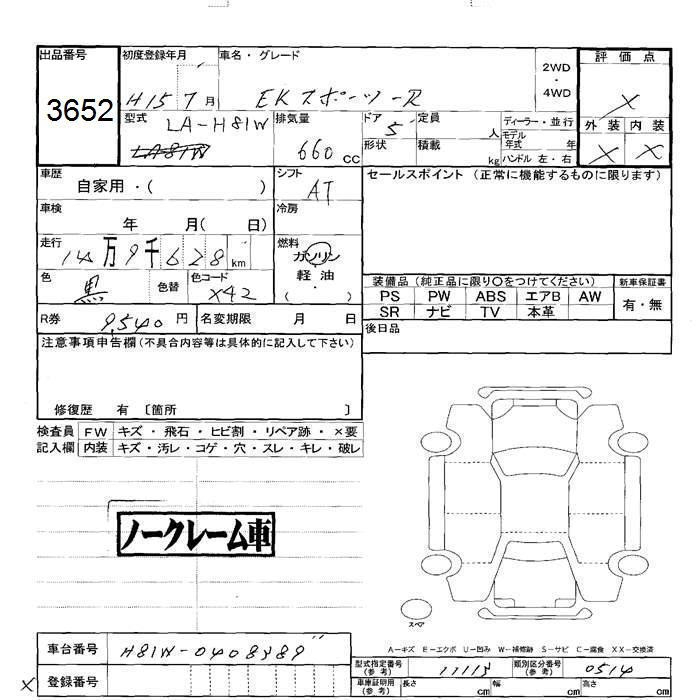 出品番号
3652
初度登録年月
H15 7月
車名・グレード
EKスポーツ-R
2WD
・
4WD
評価点
X
外装 内装
X X
型式
LA-H81W
LA81W
排気量
660 CC
ドア
5
形状
定員
人
積載
kg
ディーラー・並行
モデル年式 年
ハンドル 左・右
車歴
自家用・( )
シフト
AT
車検
年 月( 日)
冷房
走行
14万9千628km
燃料
ガソリン
軽油
( ・ )
色
黒
色替
色コード
X42
R券
9,540円
名変期限 月 日
セールスポイント (正常に機能するものに限ります)
装備品 (純正品に限り○をつけてください)
PS PW ABS エアB AW
SR ナビ TV 本革
新車保証書
有・無
後日品
注意事項申告欄(不具合内容等は具体的に記入して下さい)
修復歴 有 〔箇所 〕
検査員記入欄
FW キズ・飛石・ヒビ割・リペア跡・×要
内装 キズ・汚レ・コゲ・穴・スレ・キレ・破レ
ノークレーム車
スペア
A-キズ E-エクボ U-凹み W-補修跡 S-サビ C-腐食 XX-交換済
車台番号
H81W-0408389
X 登録番号
型式指定番号(参考)
11113
類別区分番号(参考)
0514
車庫証明用(参考) 長さ cm 幅 cm 高さ cm